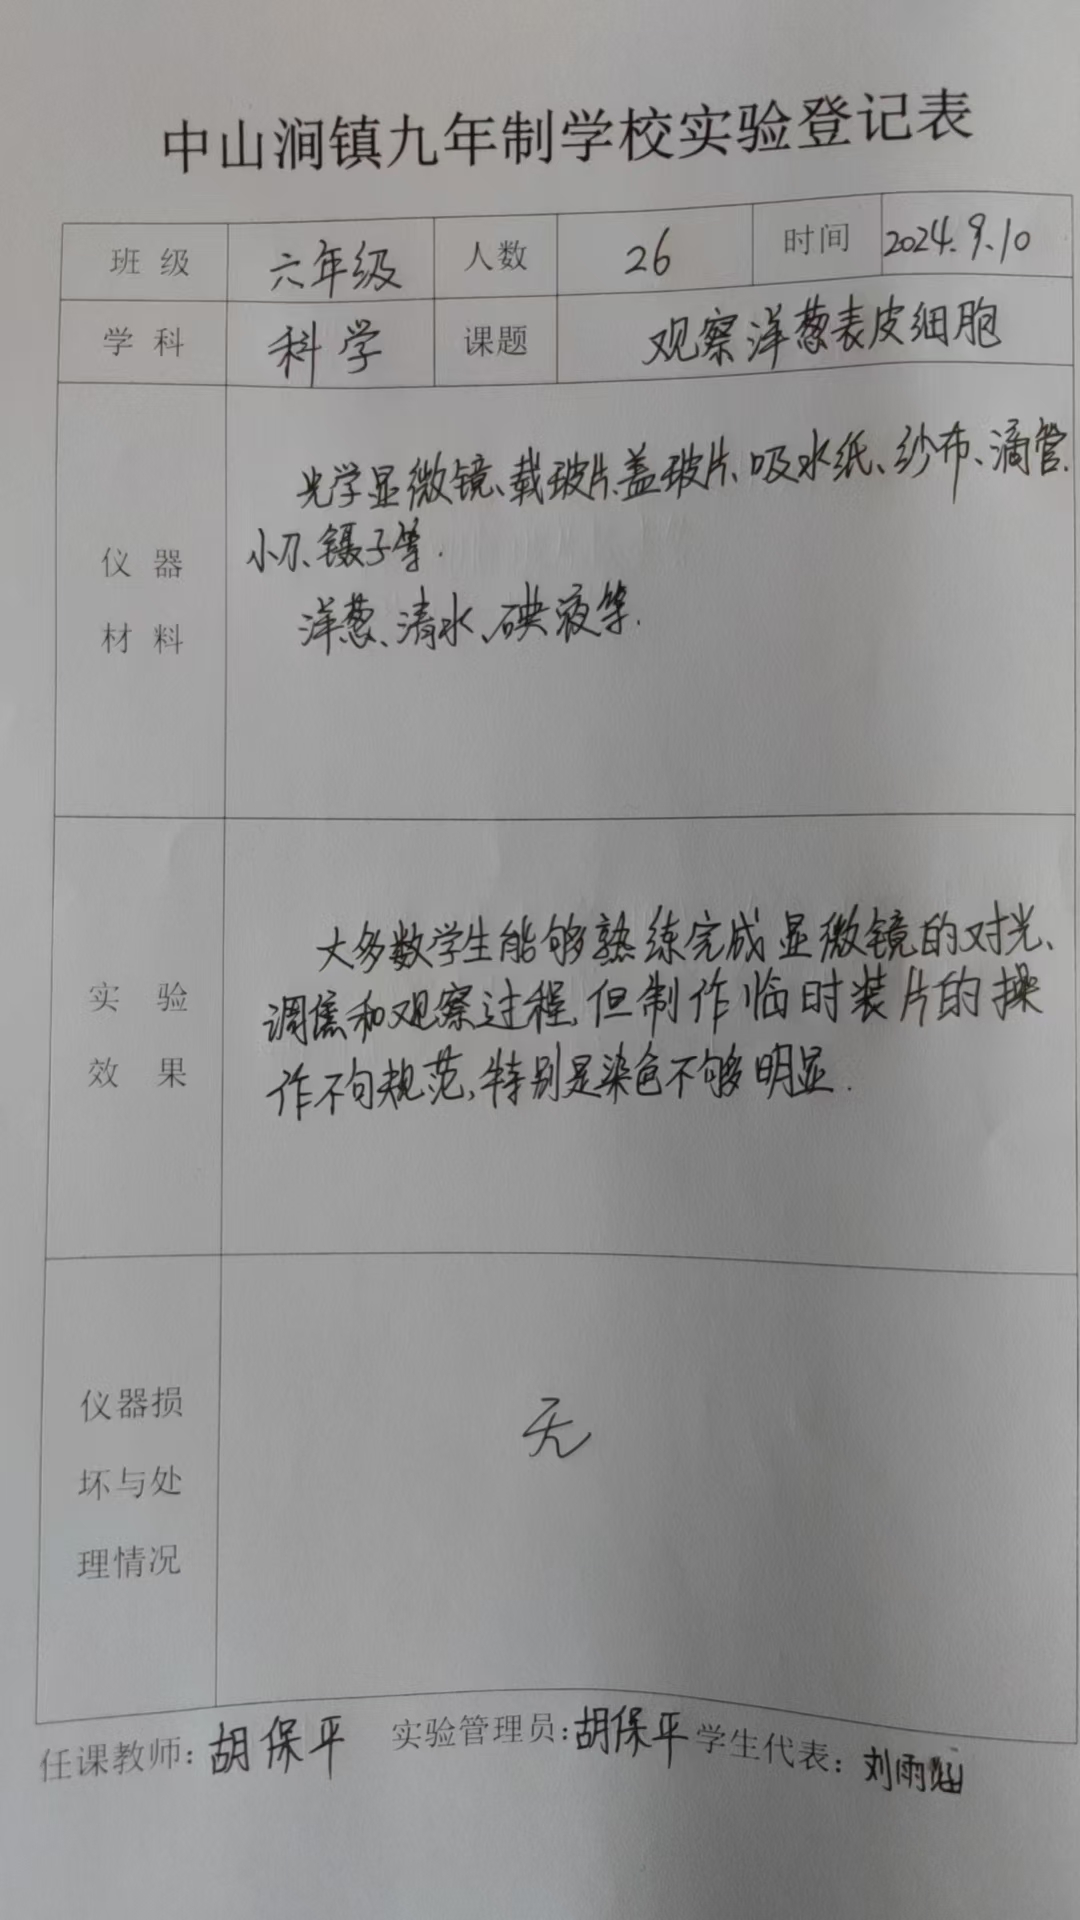 中山涧镇九年制学校实验登记表
班 级 六年级 人数 26 时间 2024.9.10
学 科 科学 课题 观察洋葱表皮细胞
仪 器
材 料
光学显微镜、载玻片、盖玻片、吸水纸、纱布、滴管、
小刀、镊子等.
洋葱、清水、碘液等.
实 验
效 果
大多数学生能够熟练完成显微镜的对光、
调焦和观察过程,但制作临时装片的操
作不句规范,特别是染色不够明显.
仪器损
坏与处
理情况
无
任课教师: 胡保平 实验管理员: 胡保平 学生代表: 刘雨